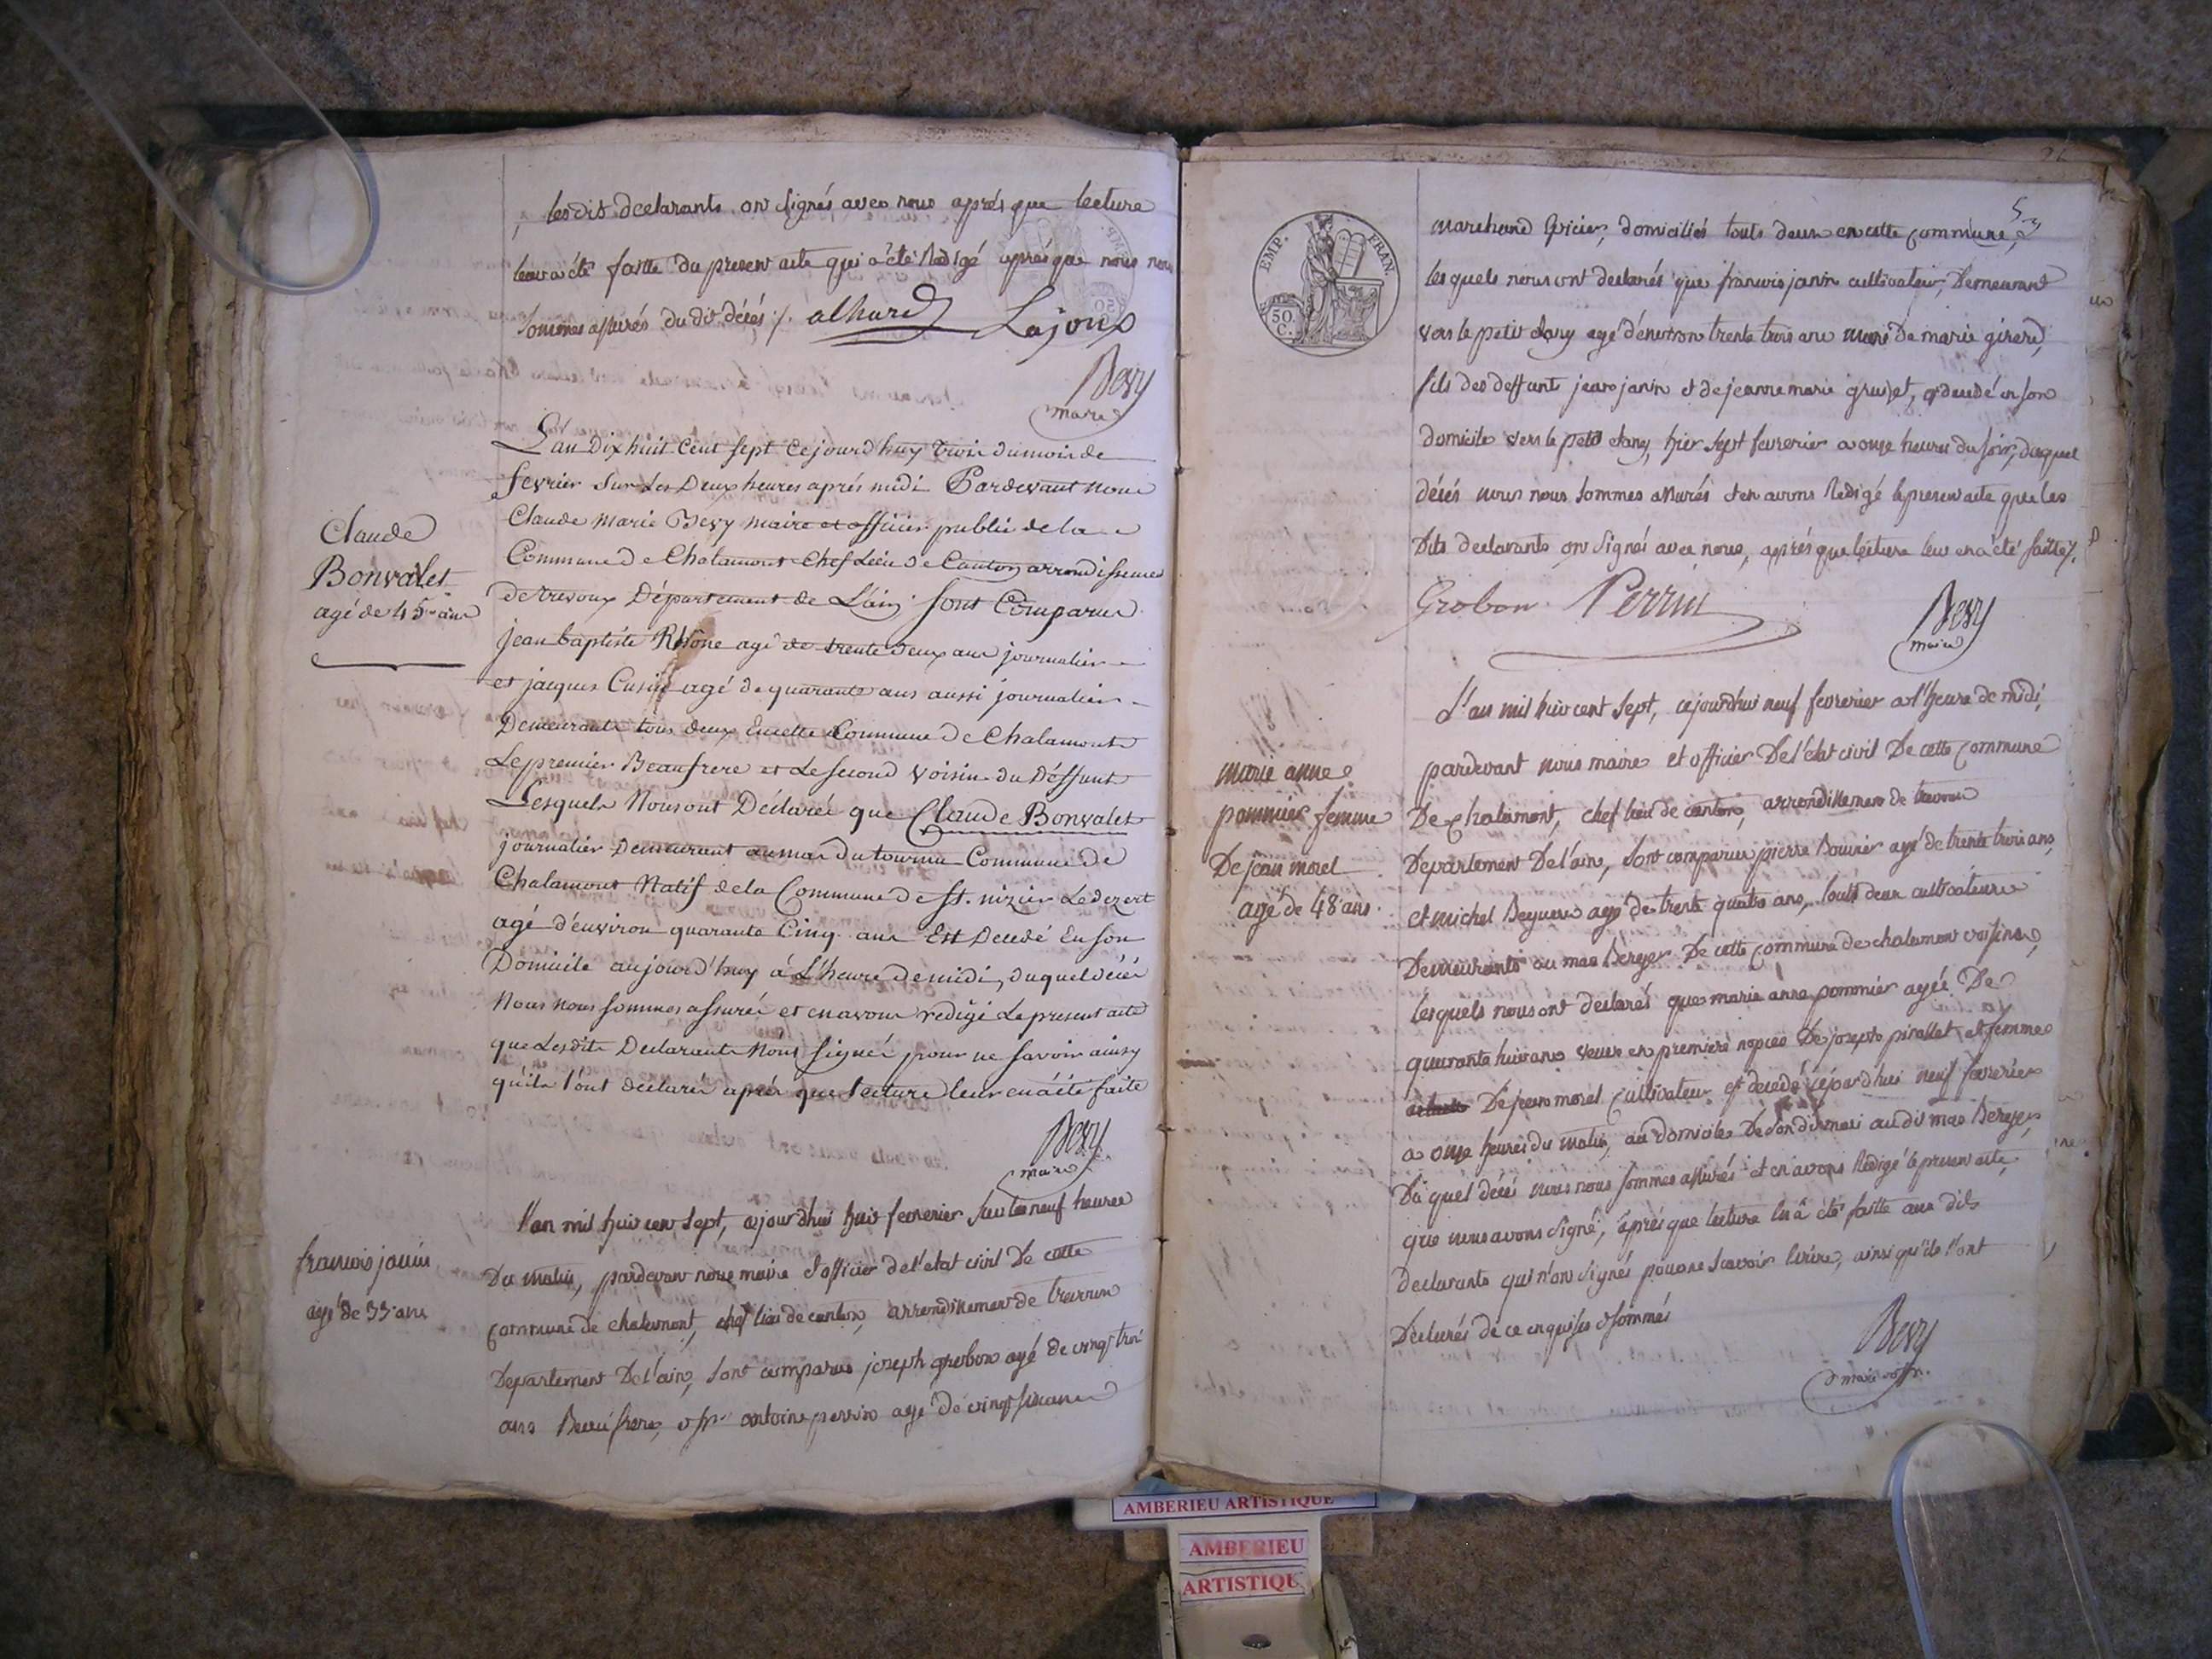 les dit declarants on signés avec nous après que lecture
leur a été faitte du present acte qui a été Redigé après que nous nous
sommes assurés du dit décés /. alhard Lajoux
Bevy
maire
L'an Dix huit Cent sept Cejourd'huy trois du mois de
fevrier sur Les Deux heures aprés midi Pardevant Nous
Claude Marie Bevy Maire et officier public de la
Commune de Chalamont Chef Lieu de Canton arrondissement
de trevoux Département de L'ain sont Comparus
Claude
Bonvalet
agé de 45 ans
jean baptiste Rhône agé de trente deux ans journalier
et jacques Cusin agé de quarante ans aussi journalier
Demeurants tous deux En cette Commune de Chalamont
Le premier Beaufrere et Le second Voisin du Déffunt
Lesquels Nous ont Déclarée que Claude Bonvalet
journalier Demeurant au mas du tournu Commune de
Chalamont Natif de la Commune de St. nizier Le dezert
agé d'environ quarante Cinq ans Est Decedé En son
Domicile aujourd'huy á L'heure de midi, duquel décés
Nous nous sommes assuré et en avons redigé Le present acte
que Lesdits Declarants N'ont Signé pour ne savoir ainsy
qu'ils l'ont declaré aprés que lecture leur en a été faite
Bevy
maire
l'an mil huit cent sept, cejourd'hui huit fevrerier sur les neuf heures
françois janin
agé de 33 ans
Du matin, pardevant nous maire & officier de l'etat civil De cette
commune de chalamont, chef lieu de canton, arrondissement de trevoux
Departement De l'ain, sont comparus joseph grobon agé de vingt trois
ans Beaufrere, & sr antoine perrin agé de vingt six ans
marchand Epicier, domiciliés touts deux en cette commune,
lesquels nous ont declarés que françois janin cultivateur, Demeurant
vers le petit etang agé d'environ trente trois ans mari de marie girard,
fils des deffunts jean janin et de jeanne marie gruset, est decedé en son
domicile vers le petit etang, hier sept fevrerier a onze heures du soir, duquel
décés nous nous sommes assurés et en avons Redigé le present acte que les
Dits declarants on signés avec nous, après que lecture leur en a été faitte /.
Grobon Perrin
Bevy
maire
L'an mil huit cent sept, cejourdhui neuf fevrerier a l'heure de midi,
pardevant nous maire et officier De l'etat civil De cette commune
marie anne
pommier femme
De jean morel
agé de 48 ans
De chalamont, chef lieu de canton, arrondissement de trevoux
Departement De l'ain, sont comparus pierre Bouvier agé de trente trois ans,
et michel Beguet agé de trente quatre ans, touts deux cultivateurs
Demeurants au mas Berger De cette commune de chalamont voisins,
lesquels nous ont declarés que marie anne pommier agée De
quarante huit ans veuve en premiere nopces De joseph pirollet et femme
De jean morel cultivateur est decedé cejourd'hui neuf fevrerier
a onze heures du matin, au domicile De son dit mari au dit mas Berger,
Du quel décés nous nous sommes assurés et en avons Redigé le present acte
que nous avons signé, après que lecture en a été faitte aux dits
declarants qui n'on signés pour ne scavoir Ecrire, ainsi qu'ils l'ont
Declarés de ce enquis & sommés
Bevy
EMP. FRAN.
50
C.
AMBERIEU ARTISTIQUE
AMBERIEU
ARTISTIQU